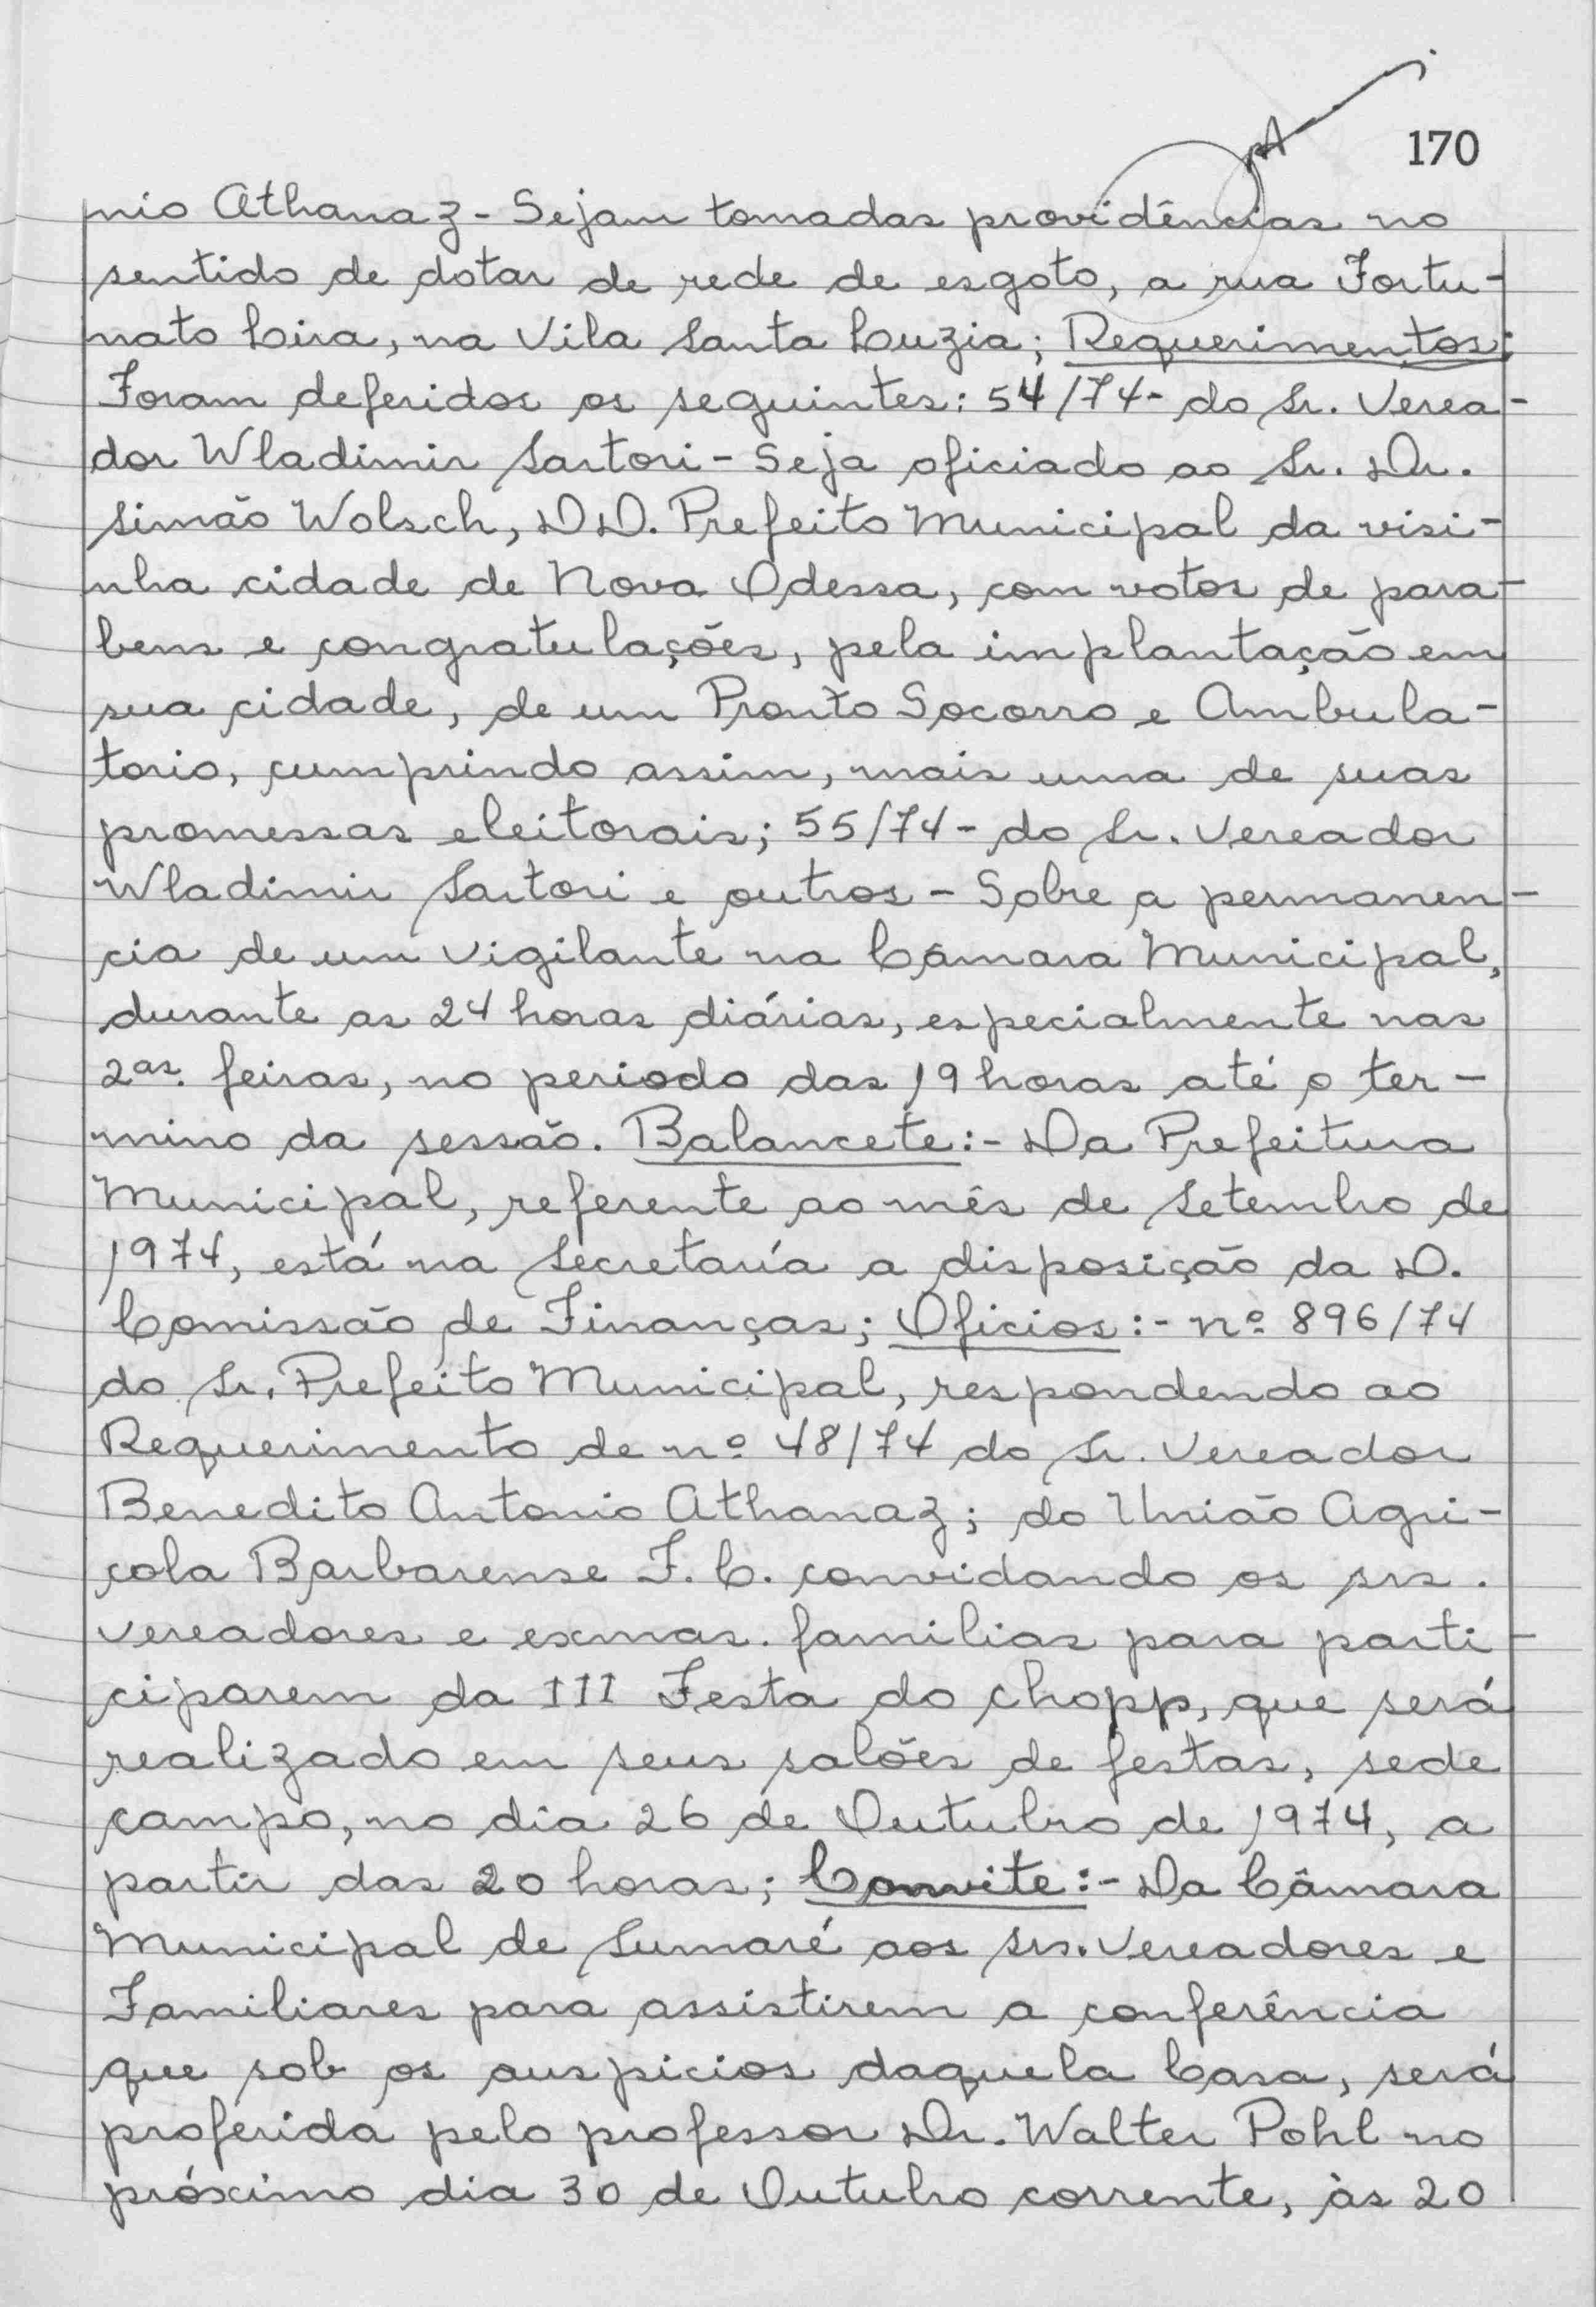 170
nio Athanaz - Sejam tomadas providências no
sentido de dotar de rede de esgoto, a rua Fortu-
nato Lira, na Vila Santa Luzia; Requerimentos:
Foram deferidos os seguintes: 54/74- do Sr. Verea-
dor Wladimir Sartori - Seja oficiado ao Sr. Dr.
Simão Wolsch, DD. Prefeito Municipal da visi-
nha cidade de Nova Odessa, com votos de para-
bens e congratulações, pela implantação em
sua cidade, de um Pronto Socorro e Ambula-
torio, cumprindo assim, mais uma de suas
promessas eleitorais; 55/74- do Sr. Vereador
Wladimir Sartori e outros - Sobre a permanen-
cia de um vigilante na Câmara Municipal,
durante as 24 horas diárias, especialmente nas
2as. feiras, no periodo das 19 horas até o ter-
mino da sessão. Balancete:- Da Prefeitura
Municipal, referente ao mês de Setembro de
1974, está na Secretaría a disposição da D.
Comissão de Finanças; Oficios:- nº 896/74
do Sr. Prefeito Municipal, respondendo ao
Requerimento de nº 48/74 do Sr. Vereador
Benedito Antonio Athanaz; do União Agri-
cola Barbarense F. C. convidando os srs.
vereadores e exmas. familias para parti-
ciparem da III Festa do chopp, que será
realizado em seus salões de festas, sede
campo, no dia 26 de Outubro de 1974, a
partir das 20 horas; Convite:- Da Câmara
Municipal de Sumaré aos srs. Vereadores e
Familiares para assistirem a conferência
que sob os auspicios daquela Casa, será
proferida pelo professor Dr. Walter Pohl no
próximo dia 30 de Outubro corrente, às 20